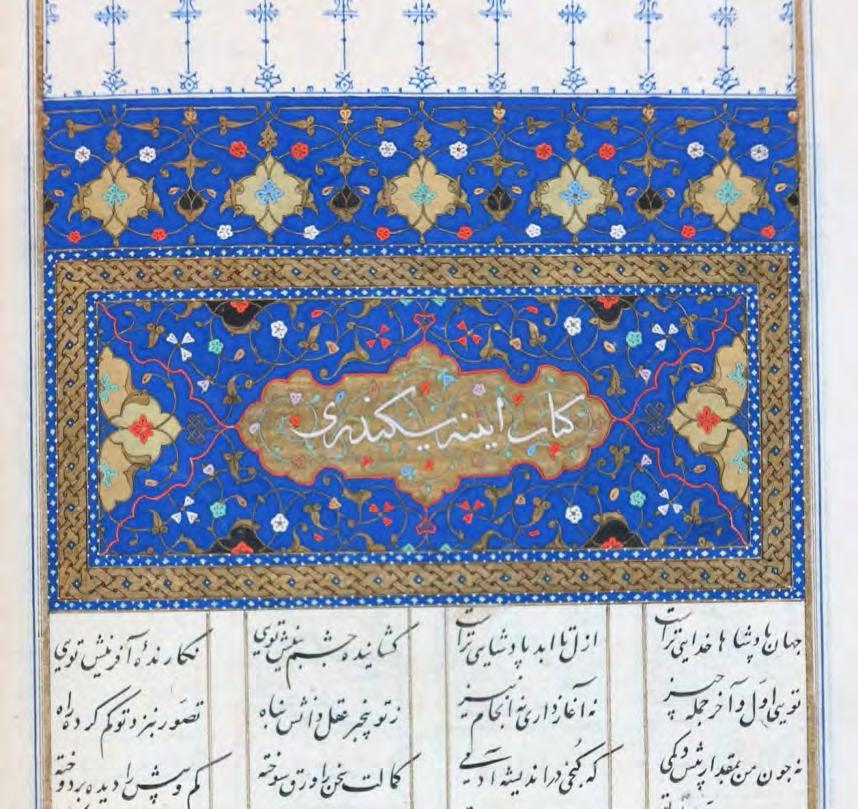 کتاب ایینه سکندری
جهان پادشاها خدایی تراست ازل تا ابد پادشایی تراست گشاینده چشم بینش تویی نگارندهٔ آفرینش تویی
تویی اول و آخر جمله چیز نه آغاز داری نه انجام نیز ز تو بیخبر عقل دانش پناه تصور بنزد تو گم کرده راه
نه چون من بمقدار بیش و کمی که گنجی در اندیشه آدمی کمالت سخن را ورق سوخته کم و بیش را دیده بردوخته